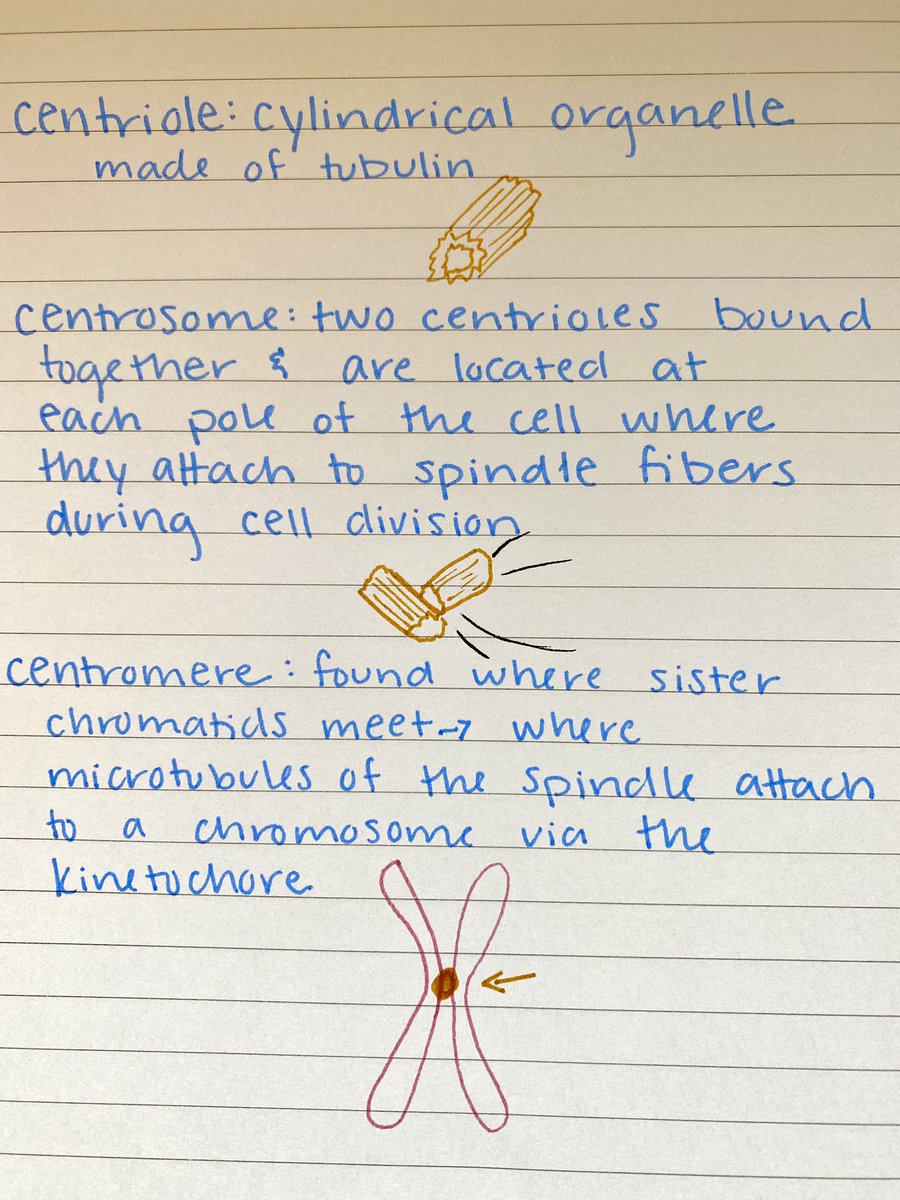 centriole: cylindrical organelle
made of tubulin
centrosome: two centrioles bound
together & are located at
each pole of the cell where
they attach to spindle fibers
during cell division
centromere: found where sister
chromatids meet → where
microtubules of the spindle attach
to a chromosome via the
kinetochore